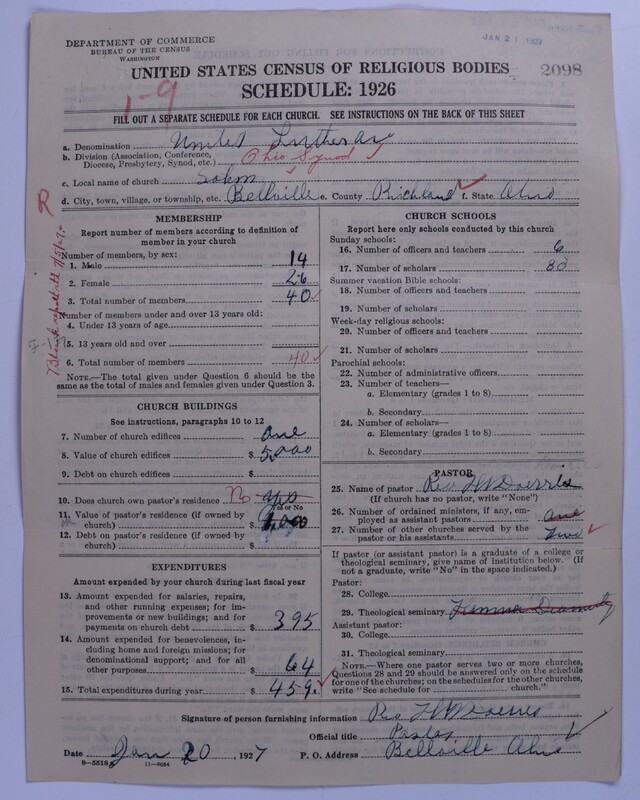 DEPARTMENT OF COMMERCE
BUREAU OF THE CENSUS
WASHINGTON
JAN 21 1927
UNITED STATES CENSUS OF RELIGIOUS BODIES
2098
SCHEDULE: 1926
1-9
FILL OUT A SEPARATE SCHEDULE FOR EACH CHURCH. SEE INSTRUCTIONS ON THE BACK OF THIS SHEET
a. Denomination United Lutheran
b. Division (Association, Conference, Diocese, Presbytery, Synod, etc.) Ohio Synod
c. Local name of church Salem
d. City, town, village, or township, etc. Bellville e. County Richland f. State Ohio
R
MEMBERSHIP
Report number of members according to definition of
member in your church
Number of members, by sex:
1. Male 14
2. Female 26
3. Total number of members 40
Number of members under and over 13 years old:
4. Under 13 years of age
5. 13 years old and over
6. Total number of members 40
NOTE.—The total given under Question 6 should be the
same as the total of males and females given under Question 3.
CHURCH BUILDINGS
See instructions, paragraphs 10 to 12
7. Number of church edifices One
8. Value of church edifices $ 5,000
9. Debt on church edifices $
10. Does church own pastor's residence? No
Yes or No
11. Value of pastor's residence (if owned by
church) $
12. Debt on pastor's residence (if owned by
church) $
EXPENDITURES
Amount expended by your church during last fiscal year
13. Amount expended for salaries, repairs,
and other running expenses; for im-
provements or new buildings; and for
payments on church debt $ 395
14. Amount expended for benevolences, in-
cluding home and foreign missions; for
denominational support; and for all
other purposes $ 64
15. Total expenditures during year $ 459
CHURCH SCHOOLS
Report here only schools conducted by this church
Sunday schools:
16. Number of officers and teachers 6
17. Number of scholars 80
Summer vacation Bible schools:
18. Number of officers and teachers
19. Number of scholars
Week-day religious schools:
20. Number of officers and teachers
21. Number of scholars
Parochial schools:
22. Number of administrative officers
23. Number of teachers—
a. Elementary (grades 1 to 8)
b. Secondary
24. Number of scholars—
a. Elementary (grades 1 to 8)
b. Secondary
PASTOR
25. Name of pastor Rev H W Doerres
(If church has no pastor, write "None")
26. Number of ordained ministers, if any, em-
ployed as assistant pastors One
27. Number of other churches served by the
pastor or his assistants Two
If pastor (or assistant pastor) is a graduate of a college or
theological seminary, give name of institution below. (If
not a graduate, write "No" in the space indicated.)
Pastor:
28. College
29. Theological seminary Hamma Divinity
Assistant pastor:
30. College
31. Theological seminary
NOTE.—Where one pastor serves two or more churches,
Questions 28 and 29 should be answered only on the schedule
for one of the churches; on the schedules for the other churches,
write "See schedule for church."
Signature of person furnishing information Rev H W Doerres
Official title Pastor
Date Jan 20, 1927 P. O. Address Bellville Ohio
8-5518 11-8684